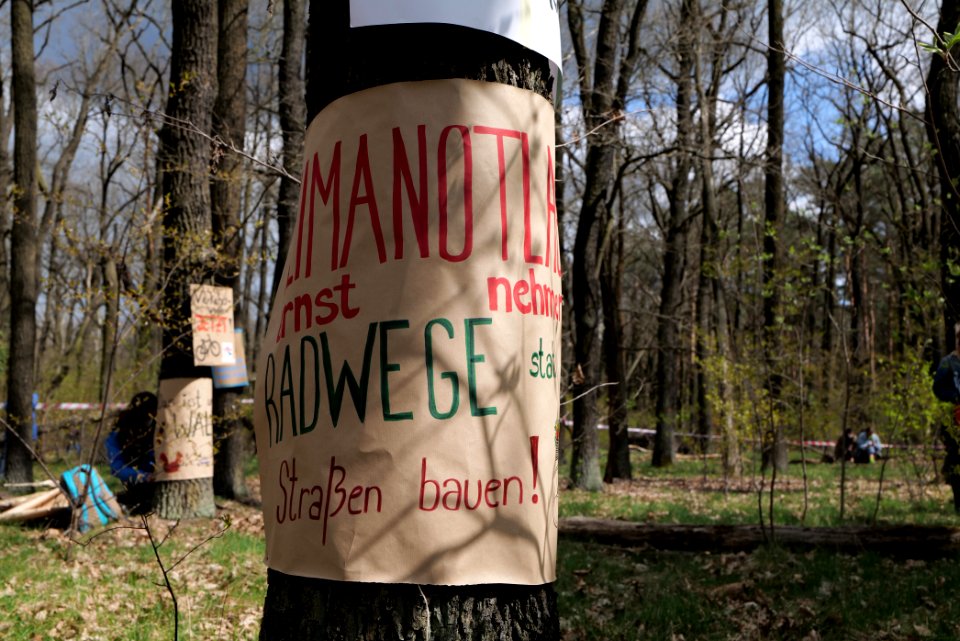 LIMANOTLA
ernst nehmen
RADWEGE stat
Straßen bauen!
JETZT!